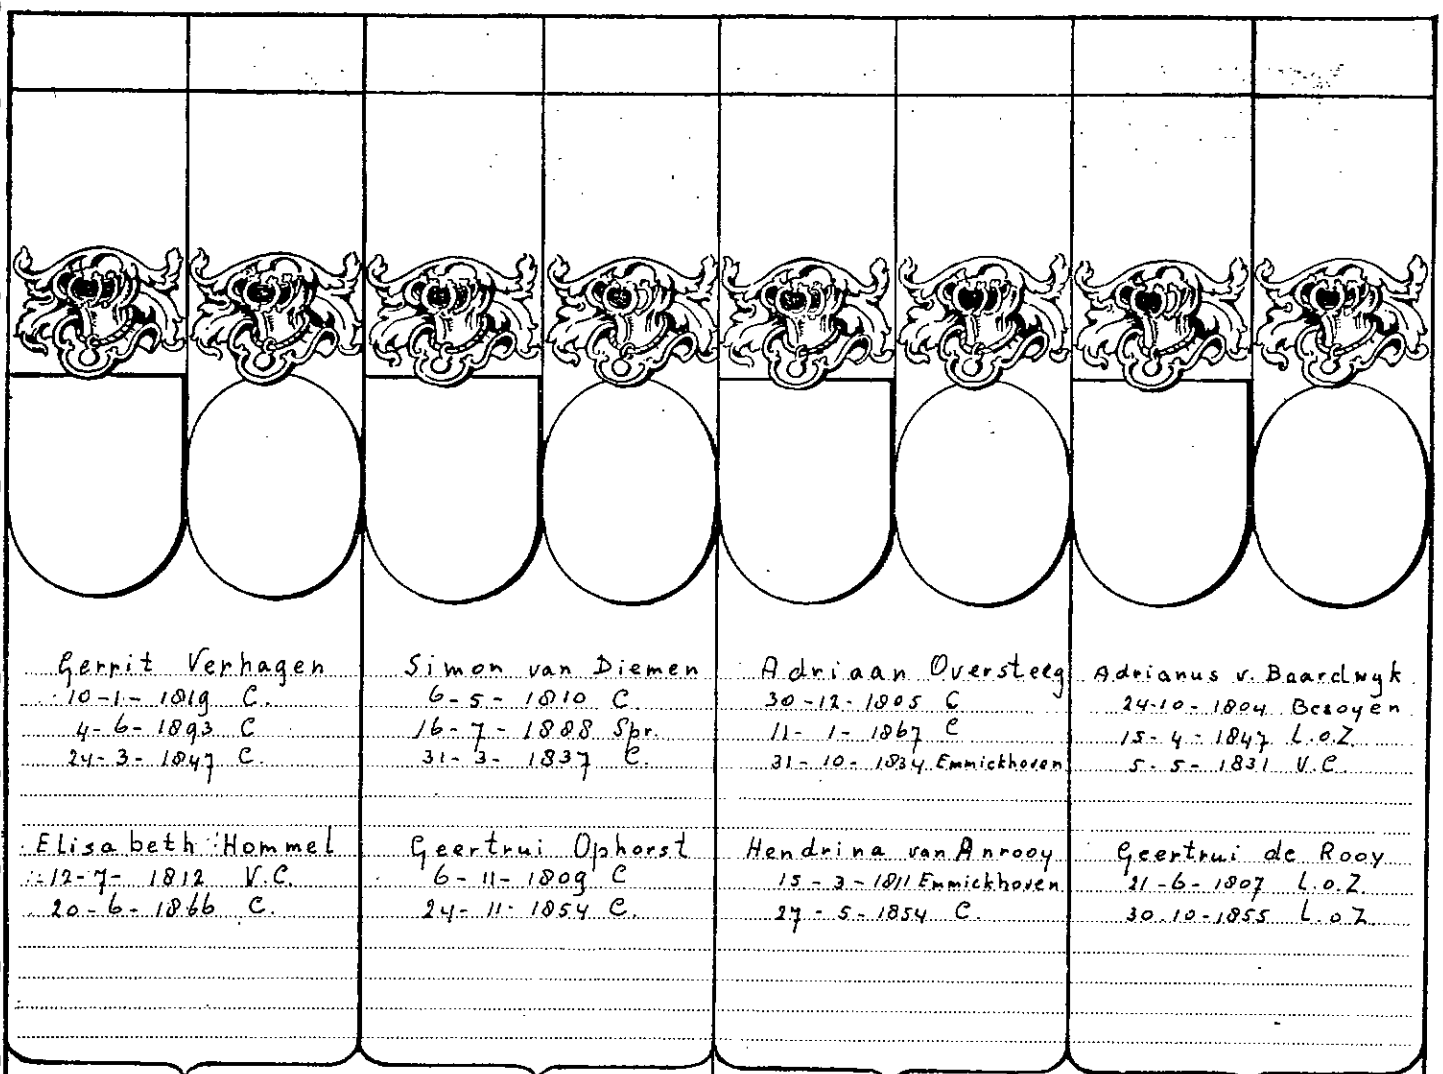 Gerrit Verhagen
10-1-1819 C.
4-6-1893 C
24-3-1847 C.
Elisabeth Hommel
12-7-1812 V.C.
20-6-1866 C.
Simon van Diemen
6-5-1810 C.
16-7-1888 Spr.
31-3-1837 C.
Geertrui Ophorst
6-11-1809 C
24-11-1854 C.
Adriaan Oversteeg
30-12-1805 C
11-1-1867 C
31-10-1834 Emmickhoven
Hendrina van Anrooy
15-3-1811 Emmickhoven
27-5-1854 C.
Adrianus v. Baardwyk
24-10-1804 Besoyen
15-4-1847 L.o.Z.
5-5-1831 V.C.
Geertrui de Rooy
21-6-1807 L.o.Z.
30.10-1855 L.o.Z.